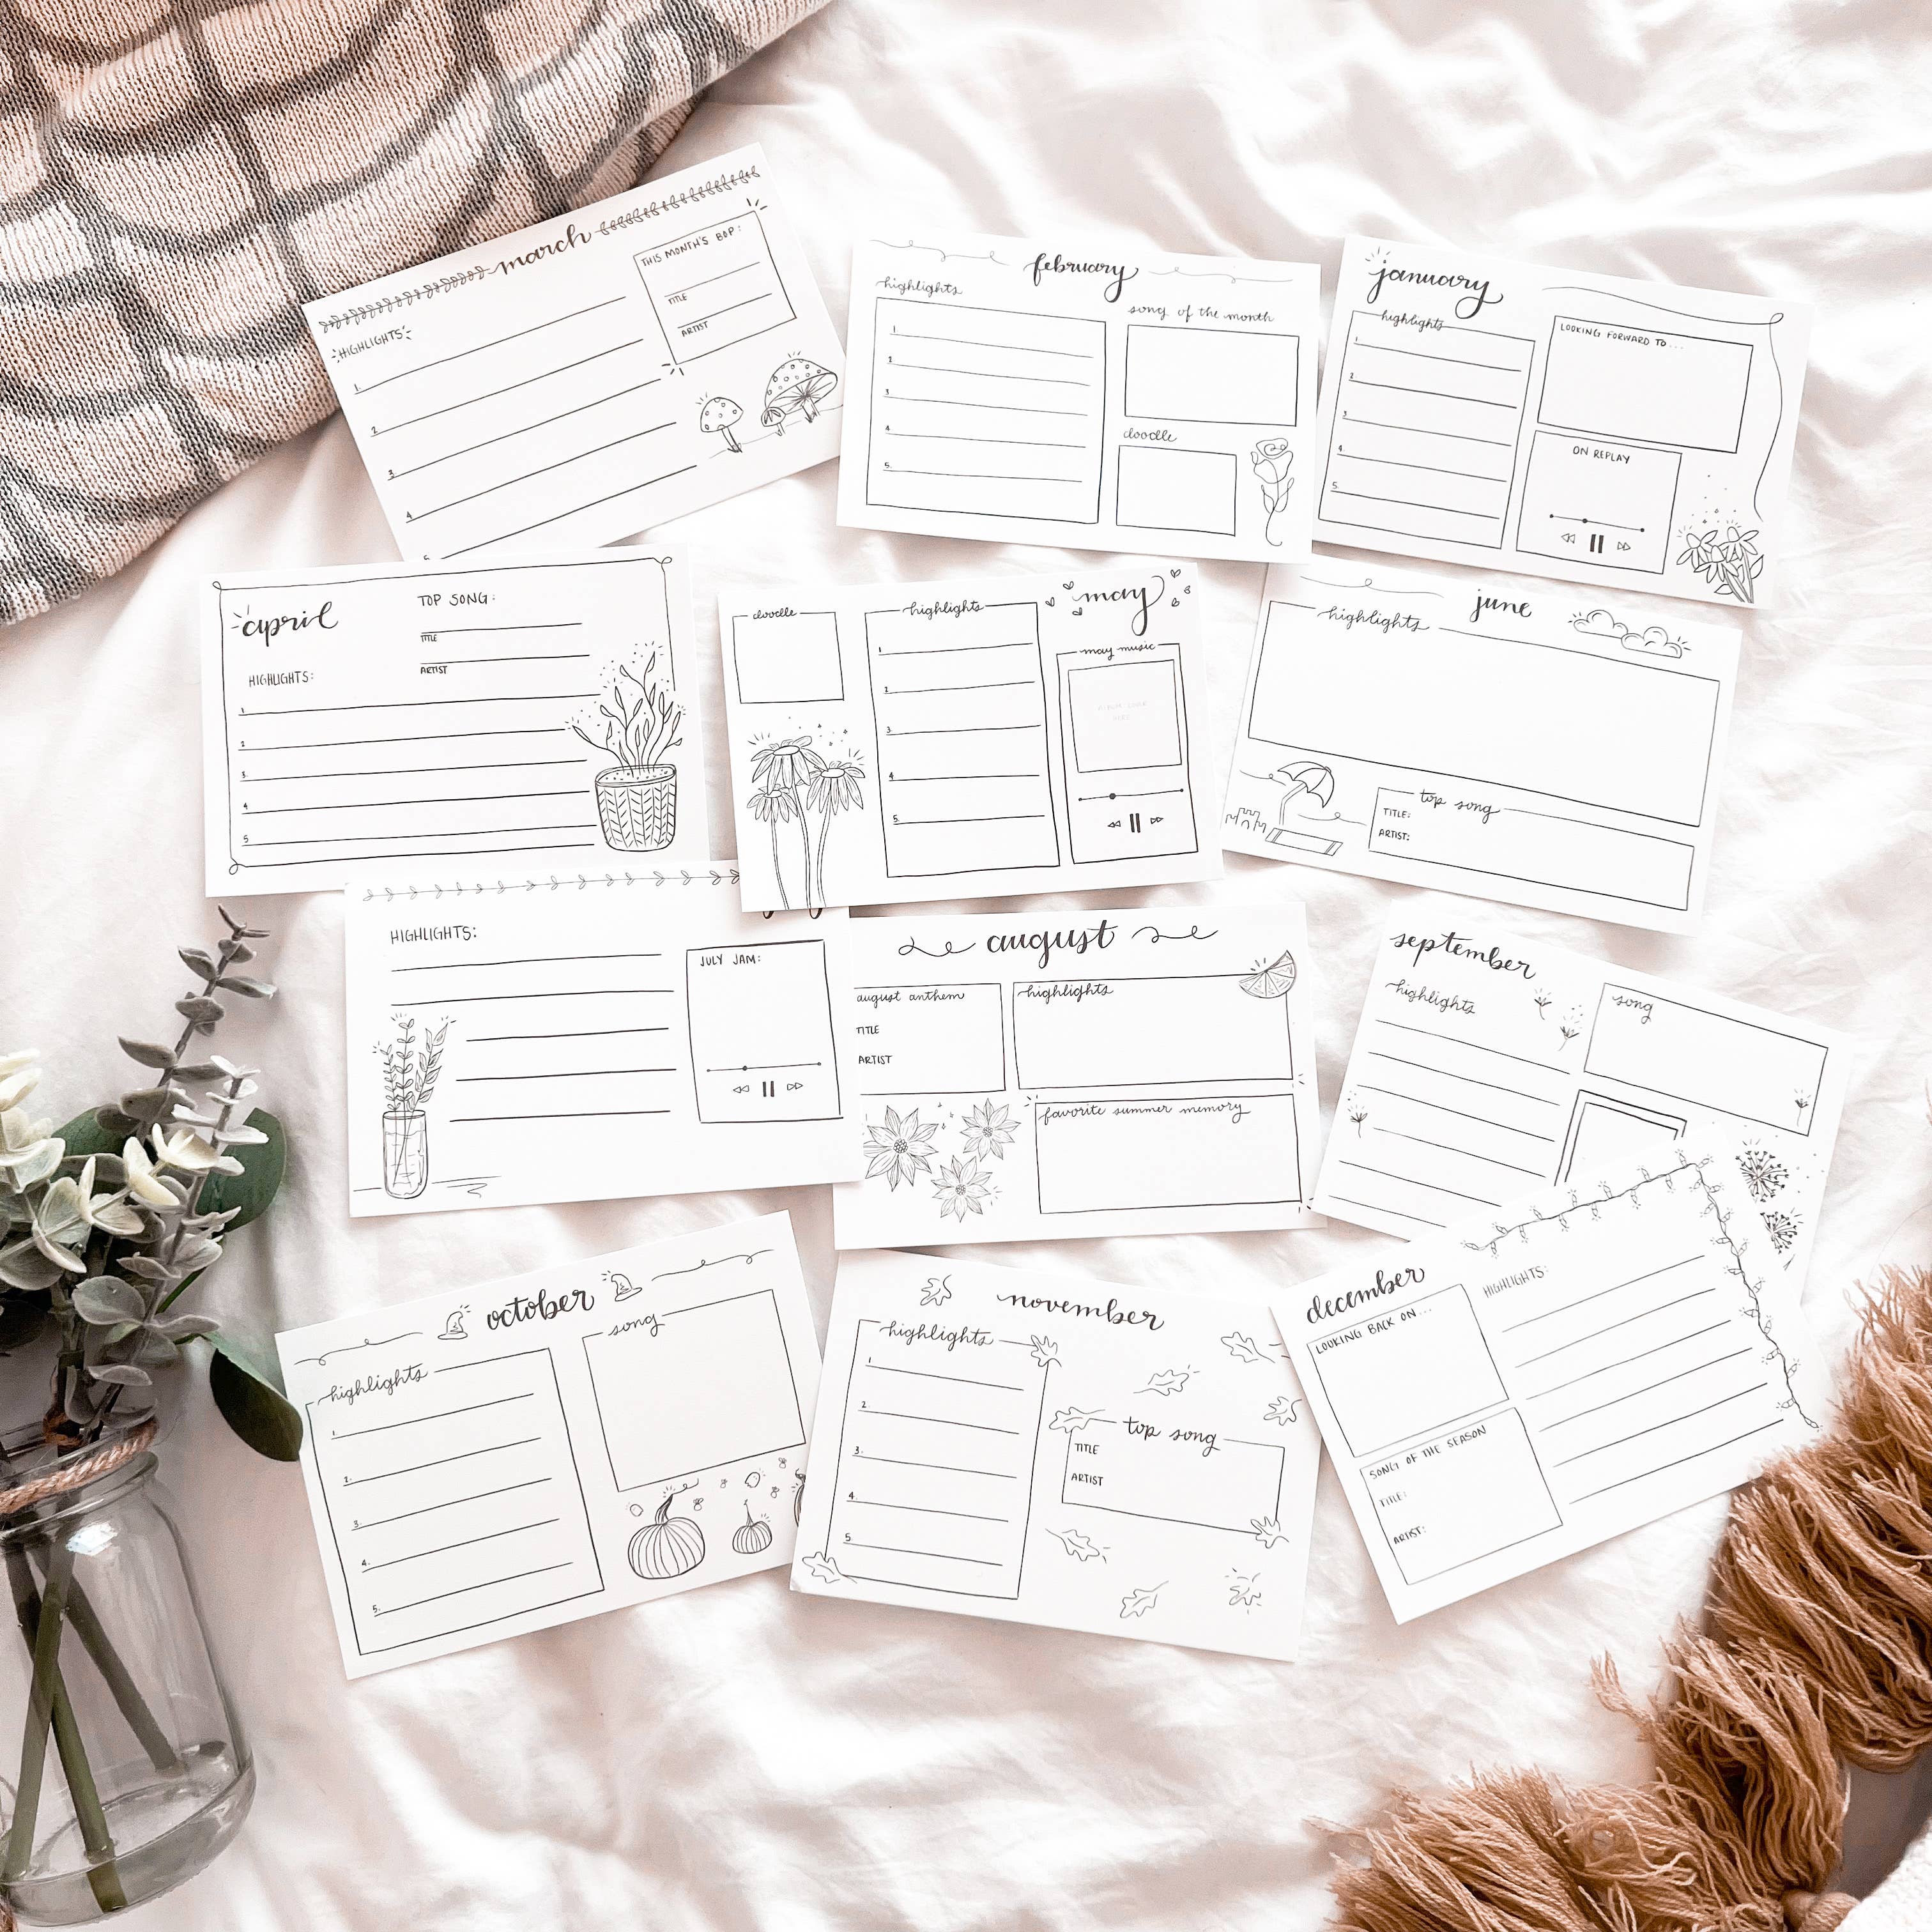 march
THIS MONTH'S BOP:
TITLE
ARTIST
HIGHLIGHTS
1.
2.
3.
4.
5.
february
highlights
1.
2.
3.
4.
5.
song of the month
doodle
january
highlights
1.
2.
3.
4.
5.
LOOKING FORWARD TO...
ON REPLAY
april
TOP SONG:
TITLE
ARTIST
HIGHLIGHTS:
1.
2.
3.
4.
5.
doodle
highlights
1.
2.
3.
4.
5.
may
may music
ALBUM COVER
HERE
june
highlights
top song
TITLE:
ARTIST:
HIGHLIGHTS:
JULY JAM:
august
august anthem
TITLE
ARTIST
highlights
favorite summer memory
september
highlights
song
october
highlights
1.
2.
3.
4.
5.
song
november
highlights
1.
2.
3.
4.
5.
top song
TITLE
ARTIST
december
LOOKING BACK ON...
HIGHLIGHTS:
SONG OF THE SEASON
TITLE:
ARTIST: